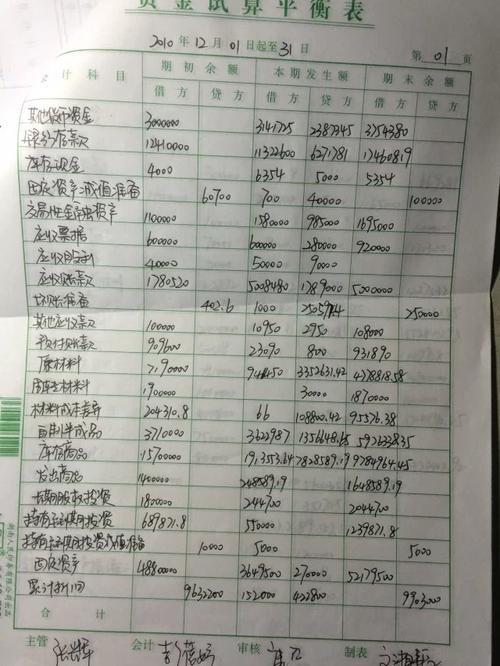 资金试算平衡表
2010 年 12 月 01 日起至 31 日
第 01 页
会计科目 期初余额 本期发生额 期末余额
借方 贷方 借方 贷方 借方 贷方
其他货币资金 3000000 3141725 2387345 3754380
银行存款 12410000 11322600 6271781 17460819
库存现金 4000 6354 5000 5354
固定资产减值准备 60700 700 40000 100000
交易性金融资产 1100000 1580000 985000 1695000
应收票据 600000 600000 280000 920000
应收 40000 50000 90000
应收账款 1780520 5008480 1789000 5000000
坏账准备 402.6 1000 250000
其他应收款 100000 10950 2950 108000
预付账款 909600 23090 800 931890
原材料 7190000 3352631.42 4378818.58
周转材料 1900000 30000 1870000
材料成本差异 204310.8 66 108800.42 95576.38
自制半成品 3710000 3622987
库存商品 15700000
发出商品 1400000 248589.19 1648589.19
长期股权投资 1800000 244700 2044700
持有至到期投资 689871.8 550000 1239871.8
持有至到期投资减值准备 10000 5000 5000
固定资产 48800000 3649500 270000 52179500
累计折旧 9632200 152000 422800 9903000
合计
主管 会计 审核 制表